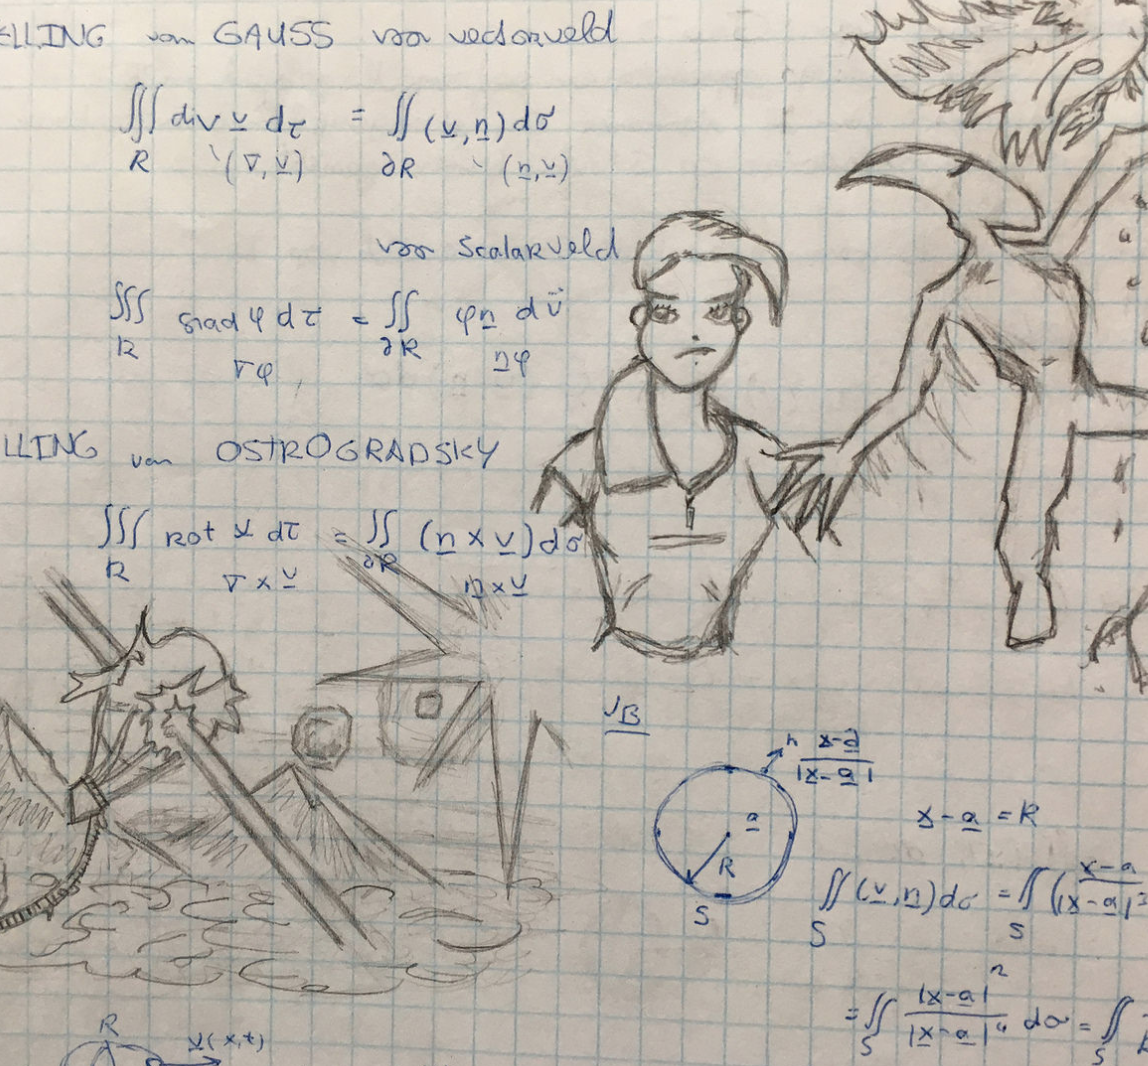 ELLING van GAUSS voor vectorveld
∭ div v̲ dτ = ∬ (v̲,n̲) dσ
R (∇,v̲) ∂R (n̲,v̲)
voor Scalarveld
∭ grad φ dτ = ∬ φn̲ d
R ∇φ ∂R n̲φ
LLING van OSTROGRADSKY
∭ rot v̲ dτ = ∬ (n̲ × v̲) dσ
R ∇ × v̲ ∂R n̲ × v̲
VB
n x̲-a̲
|x̲-a̲|
a̲
x̲-a̲ = R
R
S
∬ (v̲,n̲) dσ = ∬ (x̲-a̲
|x̲-a̲|³
S S
= ∬ |x̲-a̲|² dσ = ∬
|x̲-a̲|⁴
S S
R v̲(x,t)